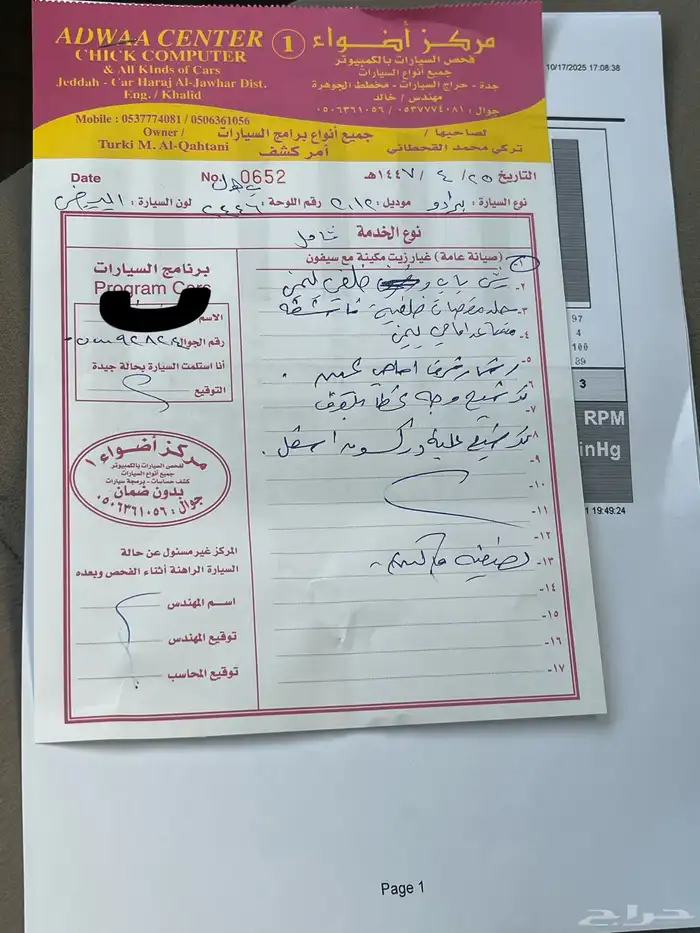 ADWAA CENTER 1 مركز أضواء
CHICK COMPUTER
& All KInds of Cars
Jeddah - Car Haraj Al-Jawhar Dist.
Eng. / Khalid
فحص السيارات بالكمبيوتر
جميع أنواع السيارات
جدة - حراج السيارات - مخطط الجوهرة
مهندس / خالد
جوال : ٠٥٣٧٧٧٤٠٨١ / ٠٥٠٦٣٦١٠٥٦
Mobile : 0537774081 / 0506361056
Owner /
Turki M. Al-Qahtani
جميع أنواع برامج السيارات
أمر كشف
لصاحبها /
تركي محمد القحطاني
Date
No. 0652
التاريخ ٢٥ / ٤ / ١٤٤٧هـ
نوع السيارة : برادو موديل : ٢٠١٢ رقم اللوحة : ٢٤٤٦ لون السيارة :
نوع الخدمة شامل
برنامج السيارات
Program Cars
الاسم
رقم الجوال
أنا استلمت السيارة بحالة جيدة
التوقيع
مركز أضواء ١
فحص السيارات بالكمبيوتر
جميع أنواع السيارات
كشف حساسات - برمجة سيارات
بدون ضمان
جوال : ٠٥٠٦٣٦١٠٥٦
المركز غير مسئول عن حالة
السيارة الراهنة أثناء الفحص وبعده
اسم المهندس
توقيع المهندس
توقيع المحاسب
(صيانة عامة) غيار زيت مكينة مع سيفون
٢- رش باب و خلفي يمين
٣- جلد مقصات خلفية
٤- مساعد امامي يمين
٥- رشار رفرف امامي يمين
٦-
٧- تهريب وجه غطا البلوف
٨- تهريب علبة دركسون اسفل
٩-
١٠-
١١-
١٢-
١٣- نظيفة
١٤-
١٥-
١٦-
١٧-
10/17/2025 17:08:38
97
4
100
89
3
RPM
inHg
19:49:24
Page 1
حراج